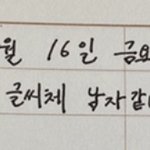 월 16일 금요
글씨체 남자같